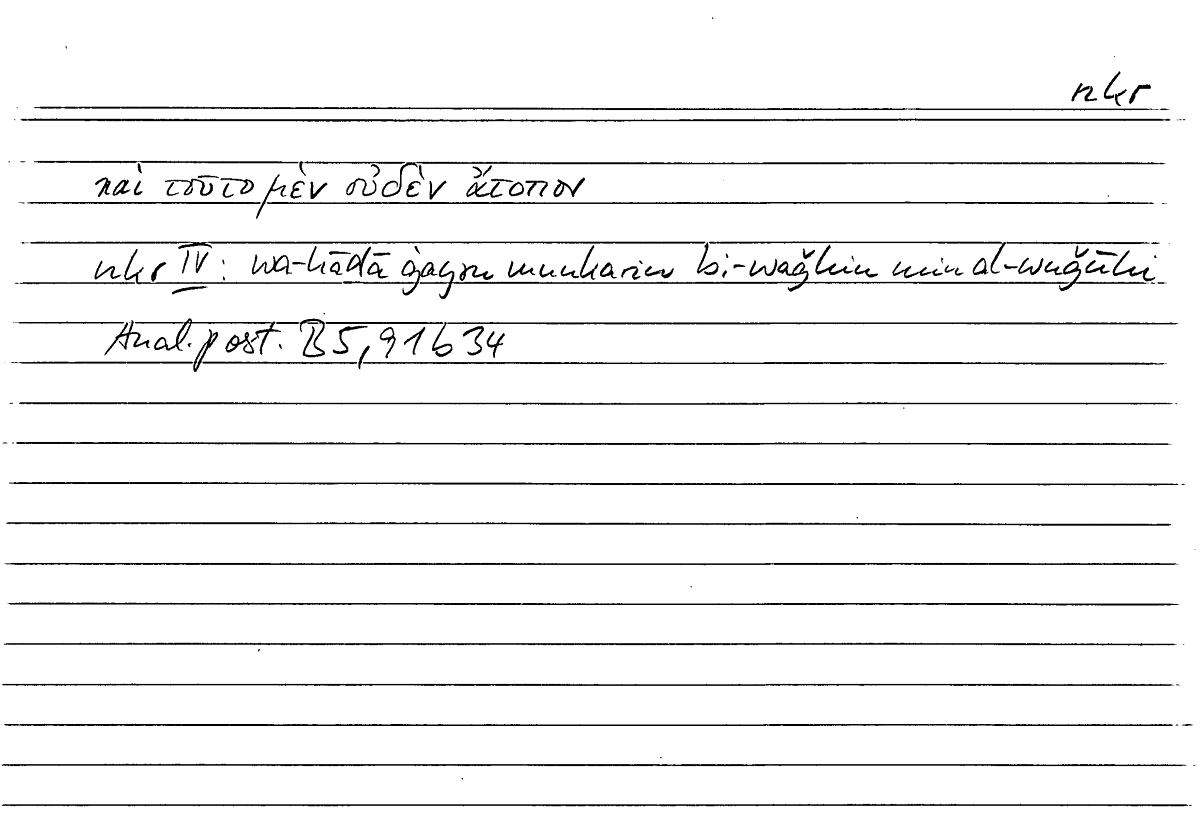 nkr
καὶ τοῦτο μὲν οὐδὲν ἄτοπον
nkr IV: wa-hāḏā ġayru munkarin bi-waǧhin min al-wuǧūhi
Anal. post. B5, 91b34